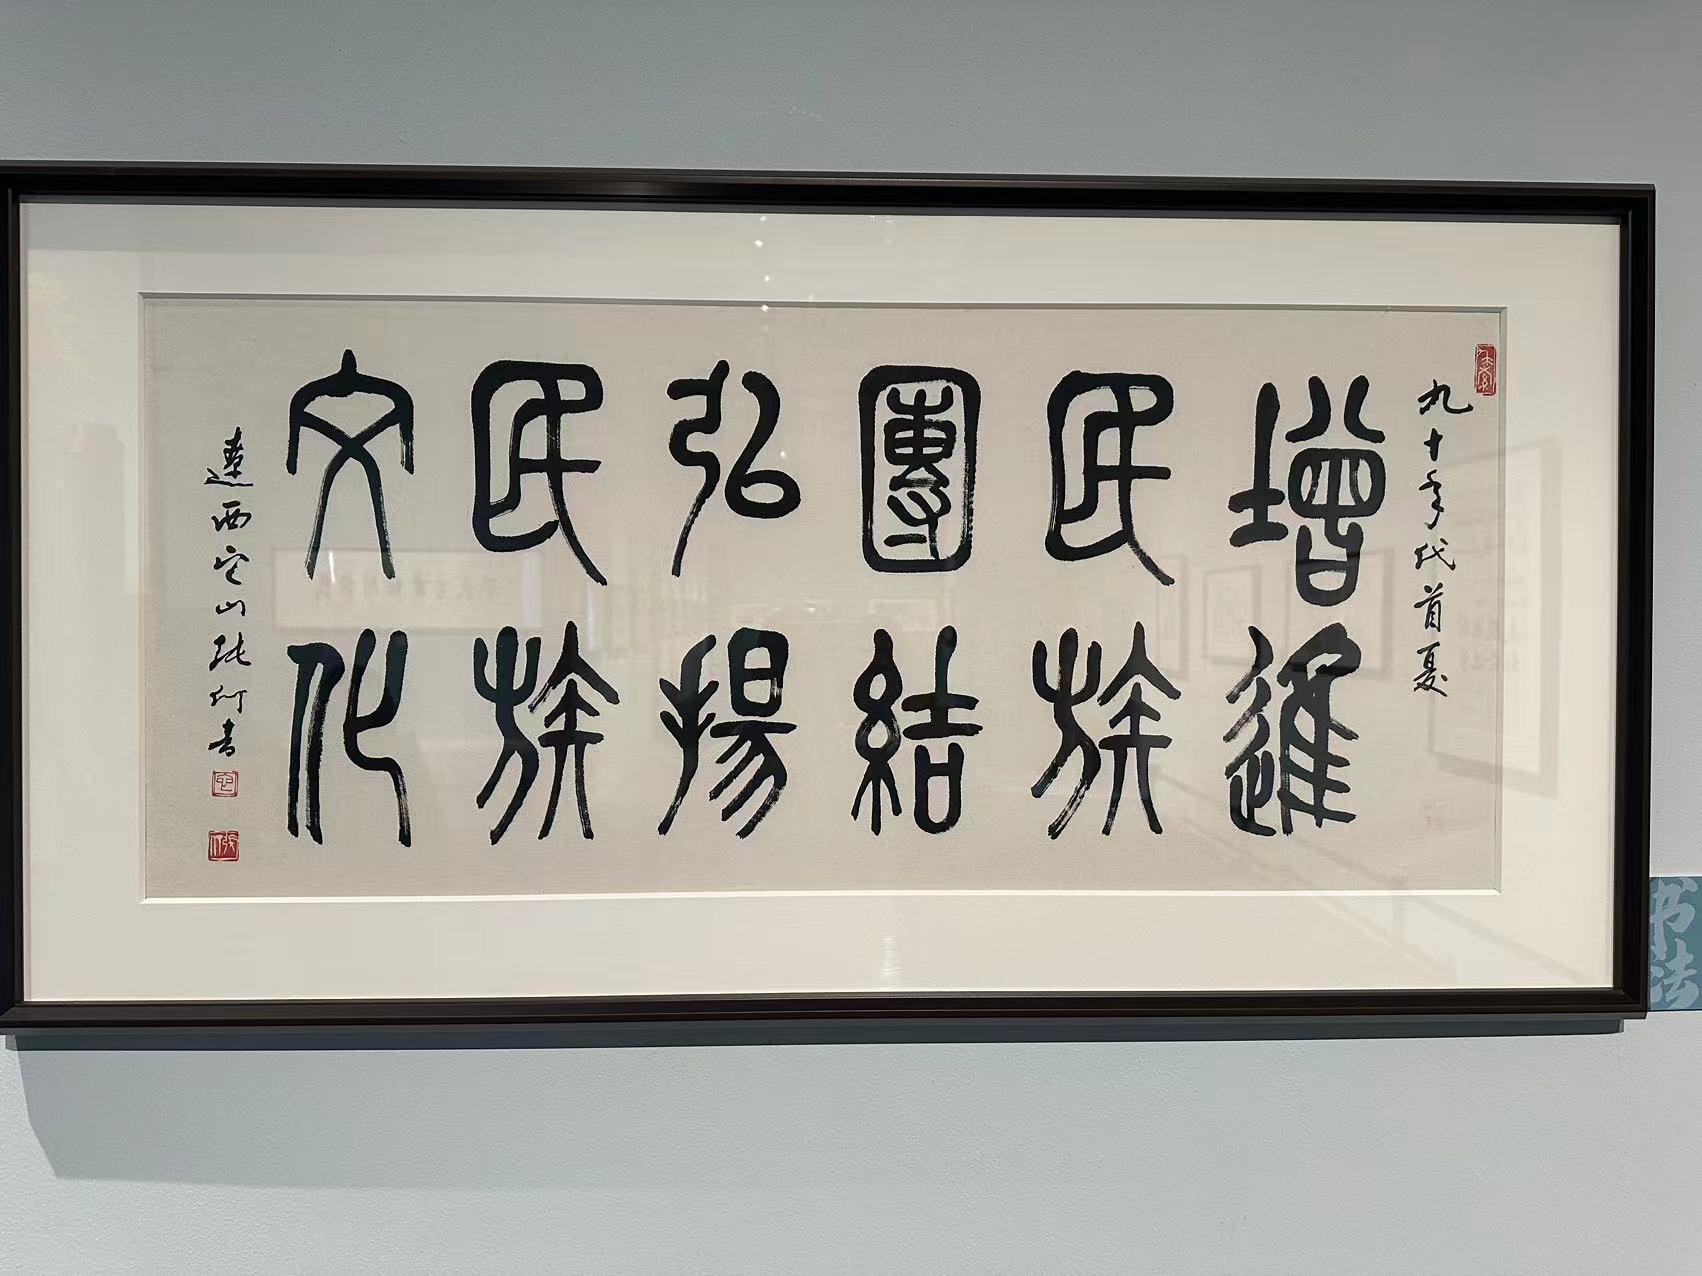 九十年代首夏
增進
民族
團結
弘揚
民族
文化
遼西空山張仃書
书法